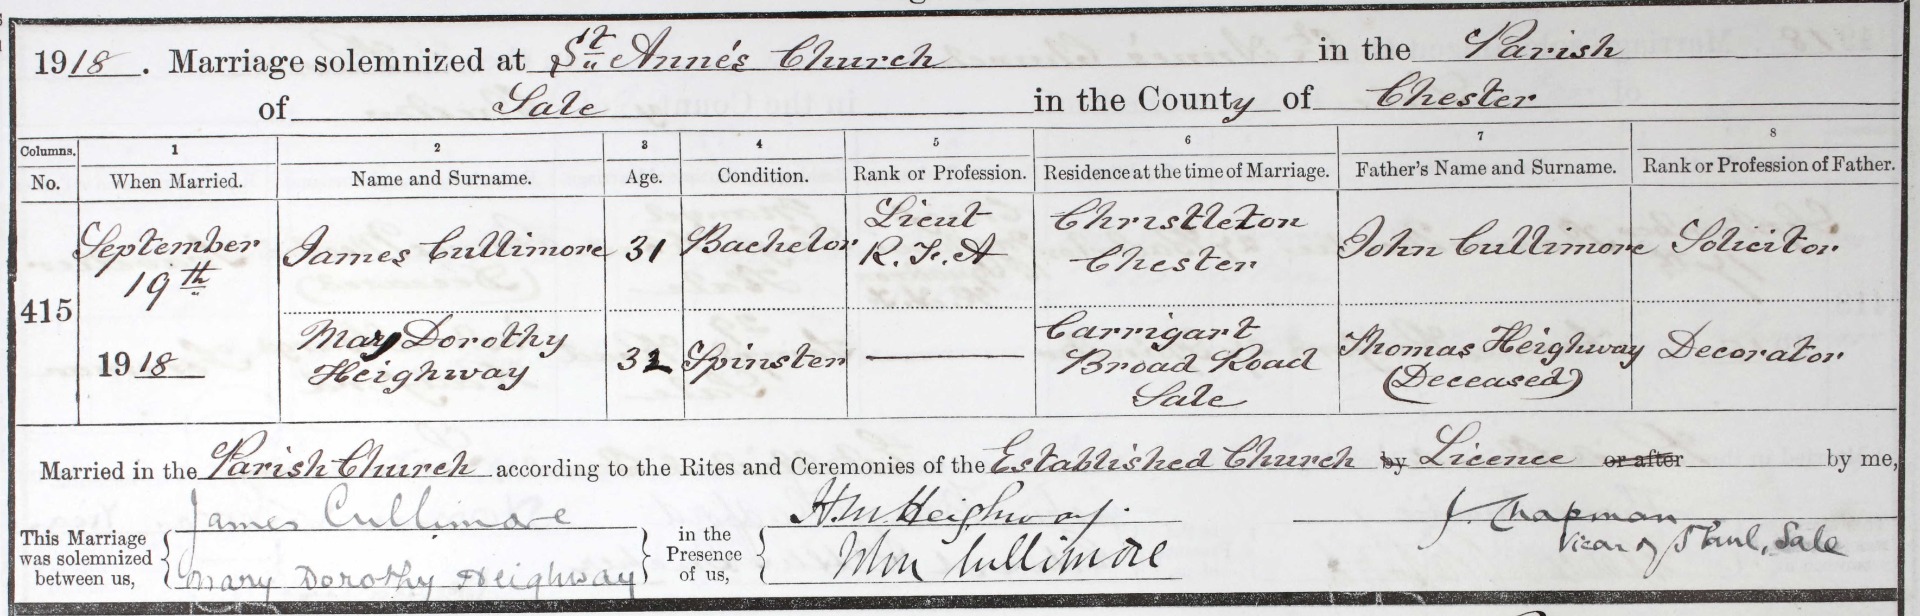 1918. Marriage solemnized at St Anne's Church in the Parish
of Sale in the County of Chester
Columns. 1 2 3 4 5 6 7 8
No. When Married. Name and Surname. Age. Condition. Rank or Profession. Residence at the time of Marriage. Father's Name and Surname. Rank or Profession of Father.
415
September
19th
1918
James Cullimore
31
Bachelor
Lieut
R.F.A
Christleton
Chester
John Cullimore
Solicitor
Mary Dorothy
Heighway
32
Spinster
Carrigart
Broad Road
Sale
Thomas Heighway
(Deceased)
Decorator
Married in the Parish Church according to the Rites and Ceremonies of the Established Church by Licence or after by me,
This Marriage
was solemnized
between us,
James Cullimore
Mary Dorothy Heighway
in the
Presence
of us,
H.M. Heighway.
Wm Cullimore
J. Chapman
Vicar of St Paul, Sale